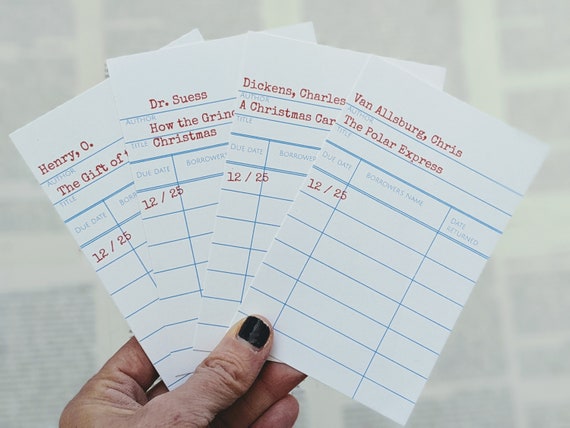 Henry, O.
AUTHOR
The Gift of
TITLE
DUE DATE
12 / 25
Dr. Suess
AUTHOR
How the Grinc
TITLE
Christmas
DUE DATE BORROWER
12 / 25
Dickens, Charles
AUTHOR
A Christmas Car
TITLE
DUE DATE BORROWE
12 / 25
Van Allsburg, Chris
AUTHOR
The Polar Express
TITLE
DUE DATE BORROWERS NAME DATE RETURNED
12 / 25